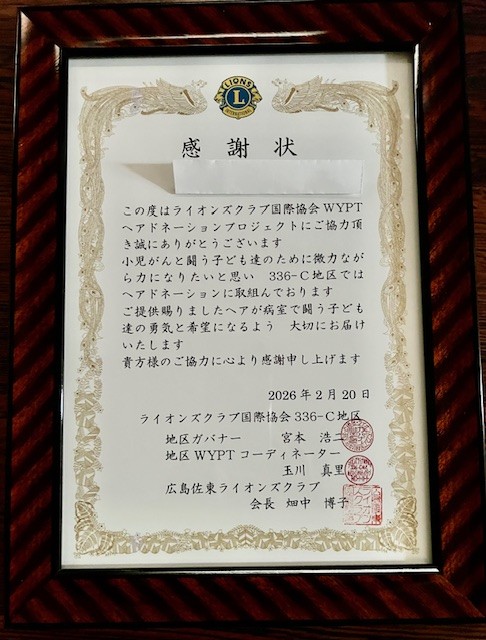 LIONS
L
INTERNATIONAL
感謝状
この度はライオンズクラブ国際協会WYPT
ヘアドネーションプロジェクトにご協力頂
き誠にありがとうございます
小児がんと闘う子ども達のために微力なが
ら力になりたいと思い 336-C地区では
ヘアドネーションに取組んでおります
ご提供賜りましたヘアが病室で闘う子ども
達の勇気と希望になるよう 大切にお届け
いたします
貴方様のご協力に心より感謝申し上げます
2026年2月20日
ライオンズクラブ国際協会336-C地区
地区ガバナー 宮本 浩二
地区WYPTコーディネーター
玉川 真里
広島佐東ライオンズクラブ
会長 畑中 博子